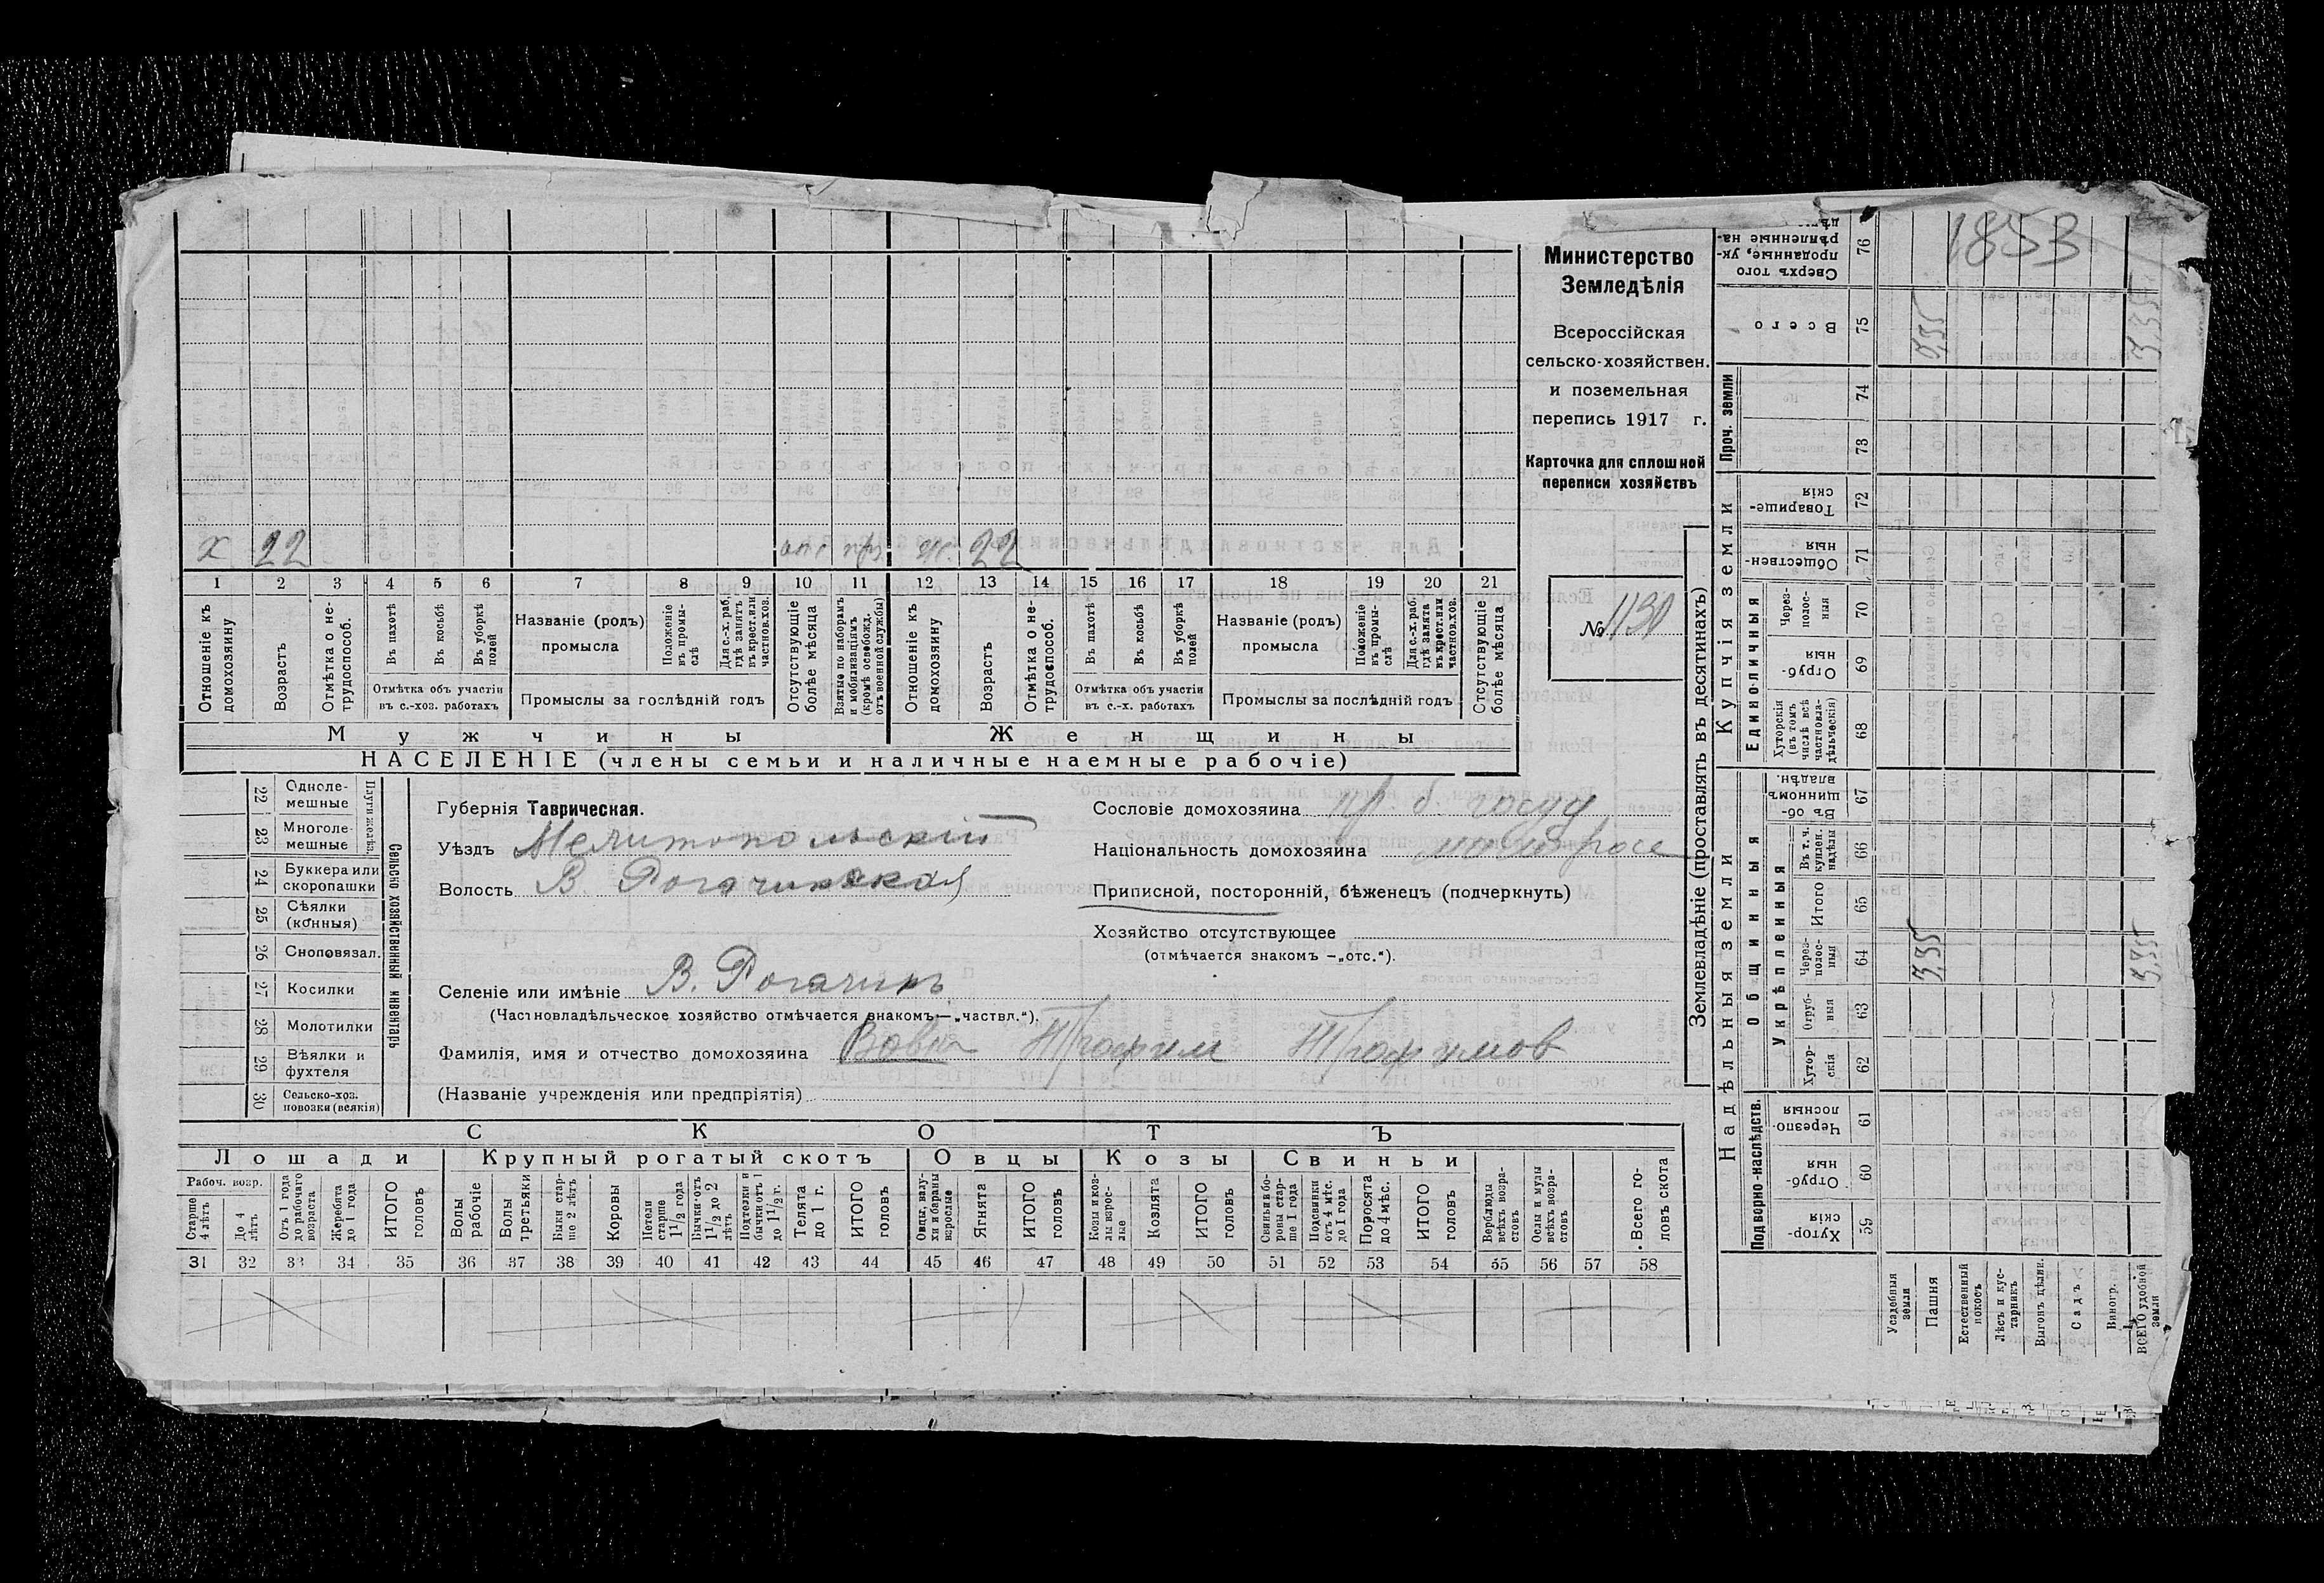 Министерство
Земледѣлія
Всероссійская
сельско-хозяйствен.
и поземельная
перепись 1917 г.
Карточка для сплошной
переписи хозяйствъ
№ 1130
х 22 отс 22
1 2 3 4 5 6 7 8 9 10 11 12 13 14 15 16 17 18 19 20 21
Отношеніе къ домохозяину
Возрастъ
Отмѣтка о не-трудоспособ.
Въ пахотѣ
Въ косьбѣ
Въ уборкѣ полей
Отмѣтка объ участіи въ с.-хоз. работахъ
Названіе (родъ) промысла
Положеніе въ промы-слѣ
Для с.-х. раб. гдѣ занятъ въ крест. или частнов. хоз.
Промыслы за послѣдній годъ
Отсутствующіе болѣе мѣсяца
Взятые по наборамъ и мобилизаціямъ (кромѣ освобожд. отъ военной службы)
Отношеніе къ домохозяину
Возрастъ
Отмѣтка о не-трудоспособ.
Въ пахотѣ
Въ косьбѣ
Въ уборкѣ полей
Отмѣтка объ участіи въ с.-х. работахъ
Названіе (родъ) промысла
Положеніе въ промы-слѣ
Для с.-х. раб. гдѣ занята въ крест. или частнов. хоз.
Промыслы за послѣдній годъ
Отсутствующіе болѣе мѣсяца
Мужчины Женщины
НАСЕЛЕНІЕ (члены семьи и наличные наемные рабочіе)
22 Одноле-мешные
23 Многоле-мешные
Плуги желѣз.
24 Буккера или скоропашки
25 Сѣялки (конныя)
26 Сноповязал.
27 Косилки
28 Молотилки
29 Вѣялки и фухтеля
30 Сельско-хоз. повозки (всякія)
Сельско хозяйственный инвентарь
Губернія Таврическая.
Уѣздъ Мелитопольскій
Волость В Рогачикская
Селеніе или имѣніе В. Рогачикъ
(Частновладѣльческое хозяйство отмѣчается знакомъ—„частвл.“).
Фамилія, имя и отчество домохозяина Вовк Трофим Трофимов
(Названіе учрежденія или предпріятія)
Сословіе домохозяина кр. б. госуд
Національность домохозяина малоросс
Приписной, посторонній, бѣженецъ (подчеркнуть)
Хозяйство отсутствующее
(отмѣчается знакомъ —„отс.“).
СКОТЪ
Лошади Крупный рогатый скотъ Овцы Козы Свиньи
Рабоч. возр.
Старше 4 лѣтъ
До 4 лѣтъ
Отъ 1 года до рабочаго возраста
Жеребята до 1 года
ИТОГО головъ
Волы рабочіе
Волы третьяки
Быки стар-ше 2 лѣтъ
Коровы
Нетели старше 1 1/2 года
Бычки отъ 1 1/2 до 2 лѣтъ
Подтелки и бычки отъ 1 до 1 1/2 г.
Телята до 1 г.
ИТОГО головъ
Овцы, валу-хи и бараны взрослые
Ягнята
ИТОГО головъ
Козы и коз-лы взрос-лые
Козлята
ИТОГО головъ
Свиньи и бо-ровы стар-ше 1 года
Подсвинки отъ 4 мѣс. до 1 года
Поросята до 4 мѣс.
ИТОГО головъ
Верблюды всѣхъ возра-стовъ
Ослы и мулы всѣхъ возра-стовъ
Всего го-ловъ скота
31 32 33 34 35 36 37 38 39 40 41 42 43 44 45 46 47 48 49 50 51 52 53 54 55 56 57 58
Землевладѣніе (проставлять въ десятинахъ)
Надѣльныя земли Купчія земли Проч. земли
Подворно-наслѣдств.
Общинныя
Укрѣпленныя
Единоличныя
Хутор-скія 59
Отруб-ныя 60
Черезпо-лосныя 61
Хутор-скія 62
Отруб-ныя 63
Через-полос-ныя 64
Итого 65
Въ т. ч. куплен. надѣлы 66
Въ об-щинномъ владѣн. 67
Хуторскія (въ томъ числѣ всѣ частновла-дѣльческія) 68
Отруб-ныя 69
Через-полос-ныя 70
Обществен-ныя 71
Товарище-скія 72
73
74
Всего 75
Сверхъ того проданные, ук-рѣпленные на-дѣлы 76
1853
3,35 3,35
3,35 3,35
Усадебныя земли
Пашня
Естественный покосъ
Лѣсъ и кус-тарникъ
Выгонъ цѣлин.
Садъ
Виногр.
ВСЕГО удобной земли